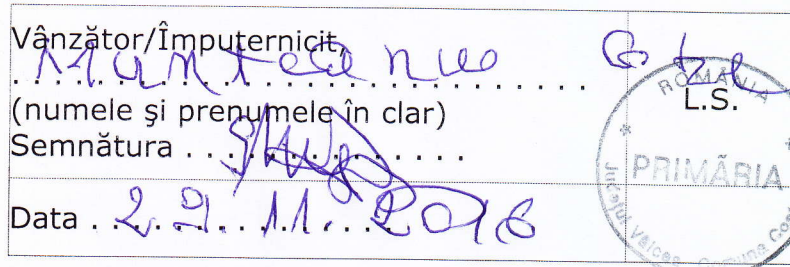 Vânzător/Împuternicit,
Munteanu
(numele şi prenumele în clar)
L.S.
Semnătura . . . . . . . . . . . . . . .
Data . 29.11.2016
ROMÂNIA
PRIMĂRIA
Judeţul Vâlcea Comuna